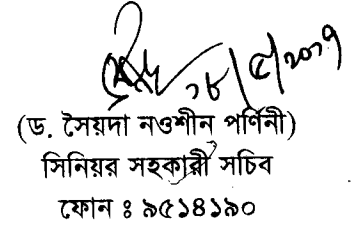 ২৮/৫/২০১৭
(ড. সৈয়দা নওশীন পর্ণিনী)
সিনিয়র সহকারী সচিব
ফোন ঃ ৯৫১৪১৯০